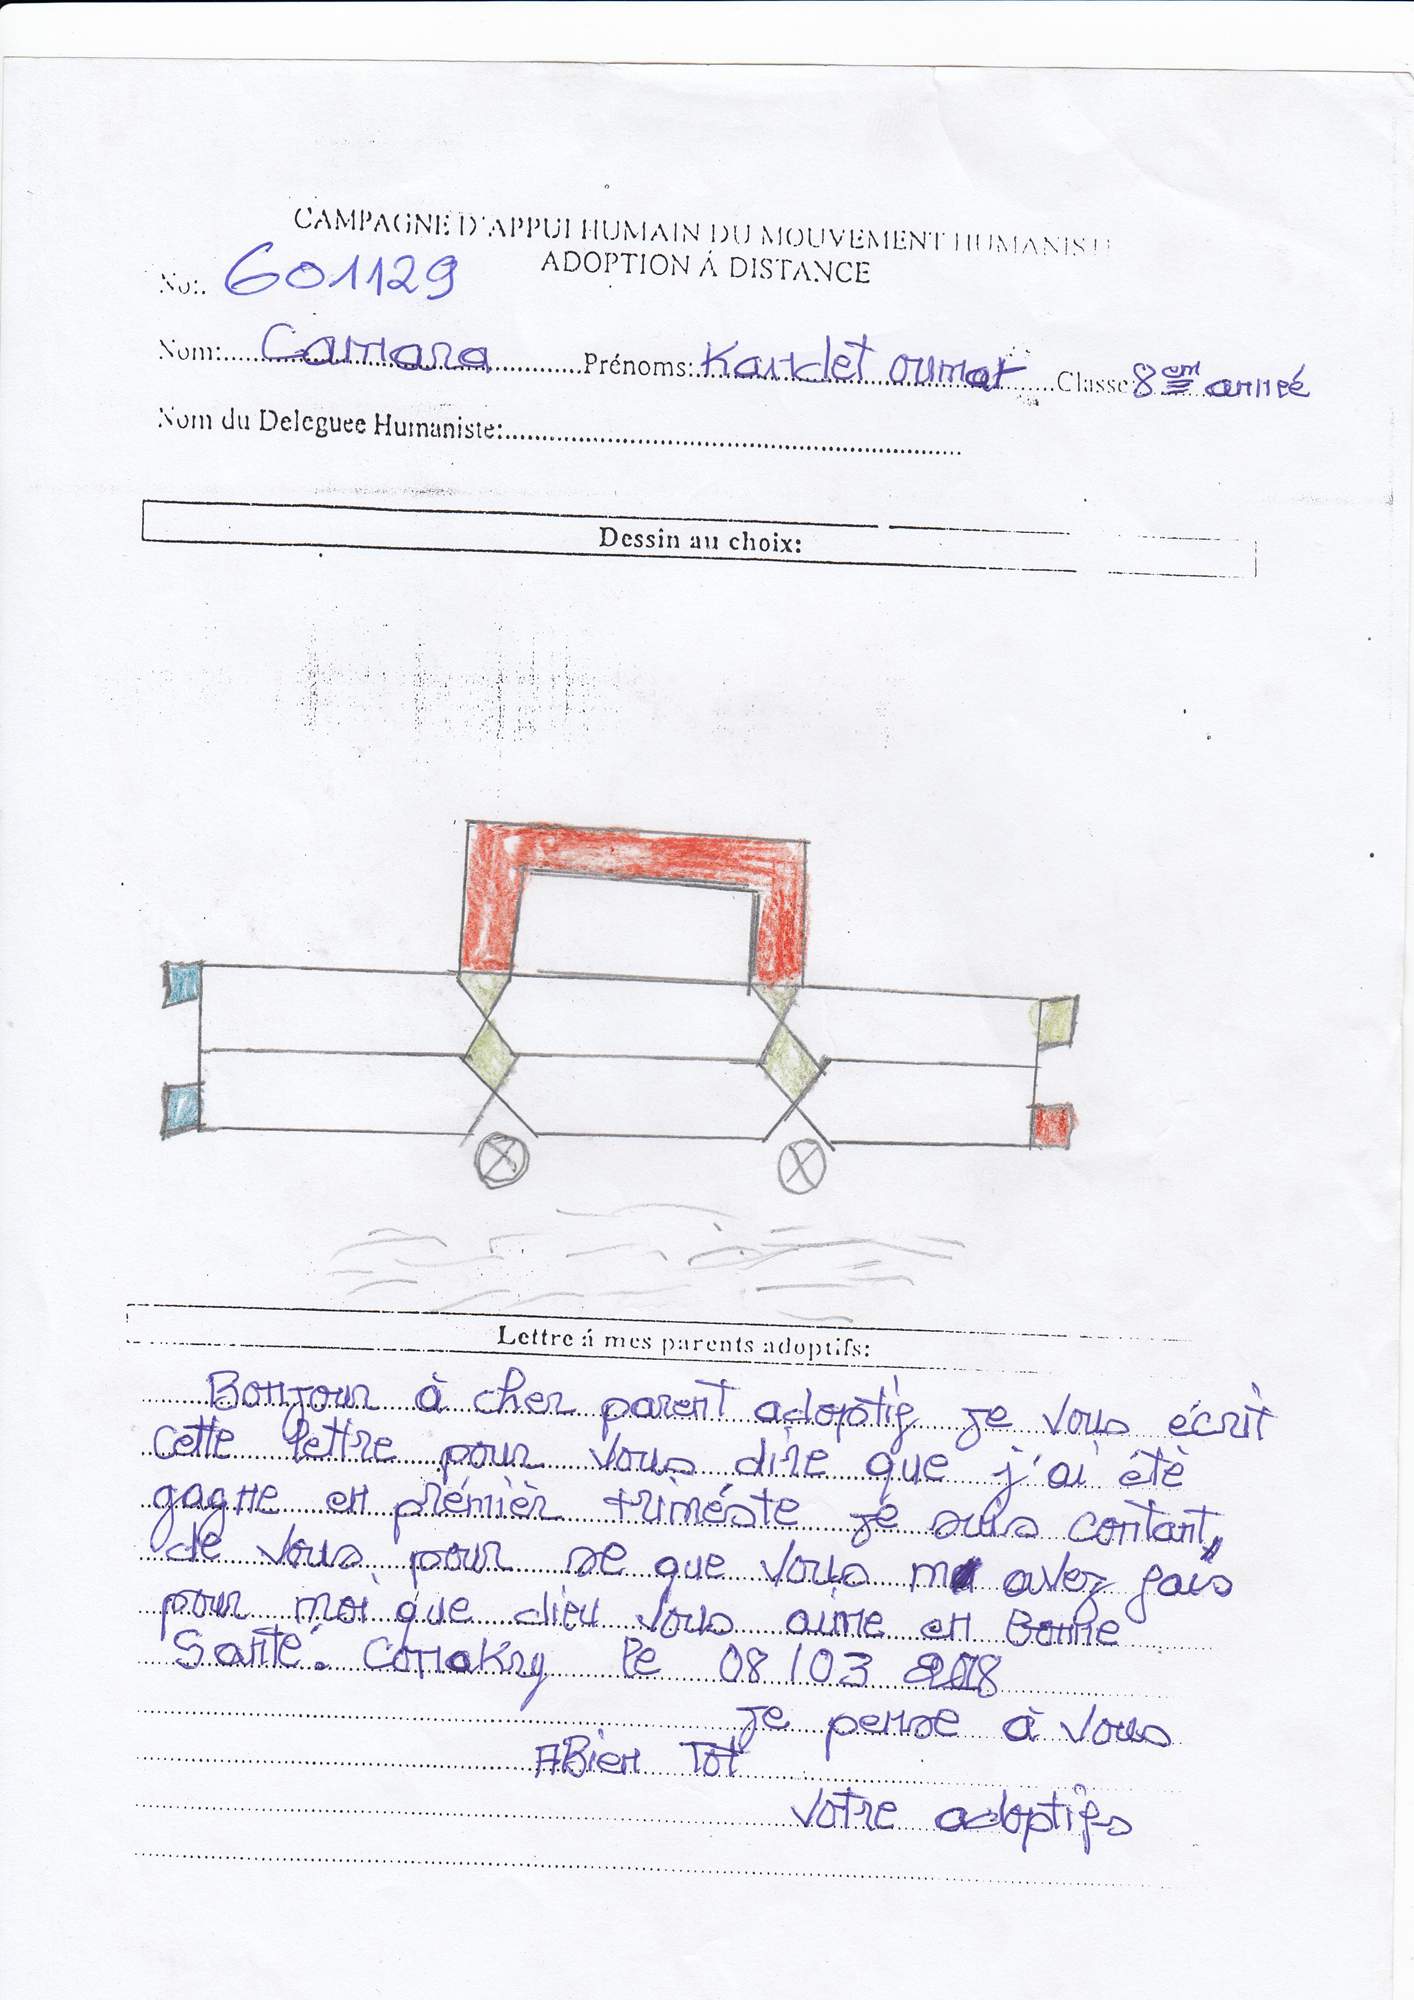 CAMPAGNE D'APPUI HUMAIN DU MOUVEMENT HUMANISTE
ADOPTION Á DISTANCE
No:. 601129
Nom: Camara Prénoms: Kandet oumar Classe 8em année
Nom du Deleguee Humaniste:
Dessin au choix:
Lettre á mes parents adoptifs:
Bonjour à cher parent adoptif je vous écrit
cette lettre pour vous dire que j'ai étè
gagne en prémièr triméste je suis contant,
de vous pour se que vous avez fais
pour moi que dieu vous aime en Bonne
Santé. Conakry le 08/03 2018
je pense à vous
ABien Tot
votre adoptifs